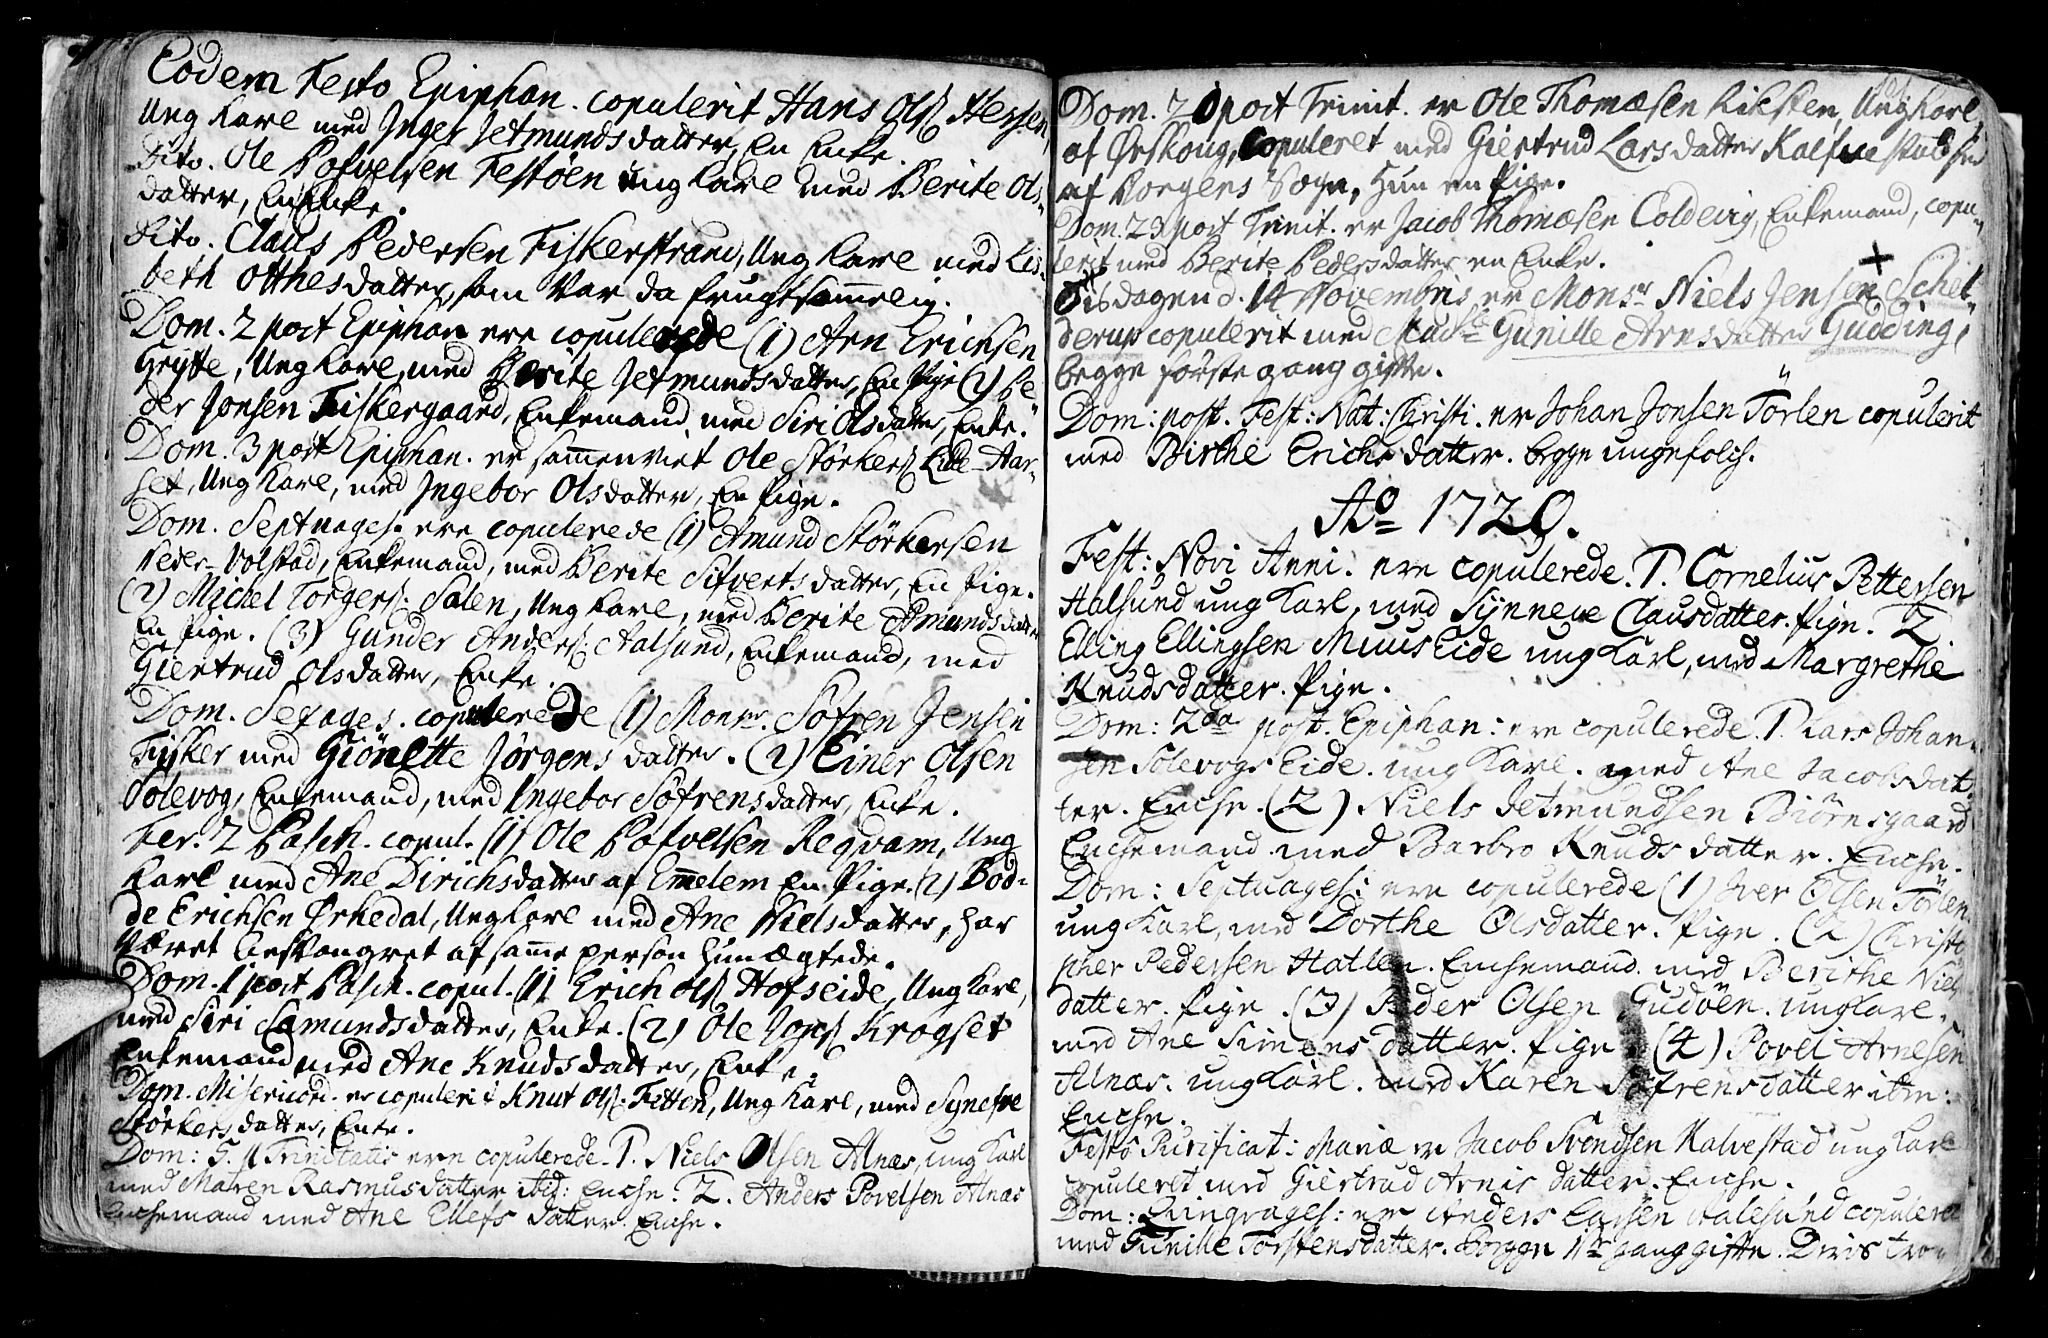 Eodem Festo Epiphan. copulerit Hans Olsß Hessen,
Ung Karl med Inger Jetmundsdatter, En Enke.
Dito. Ole Pofvelsen Festöen ung Karl med Berite Ols-
datter, En Enke.
Dito. Claus Pedersen Fiskerstrand, Ung Karl med Lis-
beth Otthesdatter, som var da frugtsommelig.
Dom. 2 post Epiphan ere copulerede (1) Arn Erichsen
Grytte, Ung Karl, med Berite Jetmundsdatter, En Pige (2) Pe-
der Jonsen Fiskergaard, Enkemand, med Siri Olsdatter, Enke.
Dom. 3 post Epiphan. er sammenviet Ole Störkersß Lille-Aar-
set, Ung Karl, med Ingebor Olsdatter, En Pige.
Dom. Septuages. ere copulerede (1) Amund Störkersen
Neder-Volstad, Enkemand, med Berite Sifvertsdatter, En Pige.
(2) Michel Torgersß: Salen, Ung Karl, med Berite Amundsdatter
En Pige. (3) Gunder Andersß: Aalsund, Enkemand, med
Giertrud Olsdatter, Enke.
Dom. Sexages. copulerede (1) Monsr. Söfren Jensen
Fisker med Giönette Jörgensdatter. (2) Einer Olsen
Solevog, Enkemand, med Ingebor Söfrensdatter, Enke.
Fer. 2 Pasch. copul. (1) Ole Pofvelsen Reqvam, Ung
Karl med Ane Dirichsdatter af Emmelem En Pige. (2) Bod-
de Erichsen Ørkedal, Ung Karl med Ane Nielsdatter, har
været besvangret af samme person hun ægtede.
Dom. 1 post Pasch. copul. (1) Erich Olsß Hofseide, Ung Karl,
med Siri Samundsdatter, Enke. (2) Ole Jonsß Krogset
Enkemand med Ane Knudsdatter, Enke.
Dom. Misericord. er copulerit Knut Olsß: Fetten, Ung Karl, med Synefve
Störkersdatter, Enke.
Dom: 5. p Trinitatis ere copulerede. 1. Niels Olsen Alnæs, ung Karl
med Maren Rasmusdatter ibid: Enche. 2. Anders Povelsen Alnæs
Enchemand med Ane Ellefsdatter. Enche.
Dom. 20 post Trinit. er Ole Thomæsen Riksten, Ung Karl,
af Ørskoug, copuleret med Giertrud Larsdatter
af Borgens Sogn, Hun en Pige.
Dom. 23 post Trinit. er Jacob Thomæsen Coldevig, Enkemand, copu-
lerit med Berite Pedersdatter en Enke.
Tisdagen d. 14 Novembris er Monsr Niels Jensen Schel-
derup copulerit med Madle Gunille Arnsdatter Gudding,
begge förste gang gifte.
Dom: post. Fest: Nat: Christi. er Johan Jonsen Törlen copulerit
med Birthe Erichsdatter. begge ungefolch.
Ao 1720.
Fest: Novi Anni. ere copulerede. 1. Cornelius Pettersen
Aalsund ung Karl, med Synneve Clausdatter. Pige. 2
Elling Ellingsen Muus Eide ung Karl, med Margrethe
Knudsdatter. Pige.
Dom: 2da post. Epiphan: ere copulerede. 1. Lars Johan-
sen Solevogs Eide. ung Karl. med Ane Jacobsdat-
ter. Enche. (2) Niels Jetmundsen Biörnsgaard
Enchemand med Barbro Knudsdatter. Enche.
Dom: Septuages: ere copulerede (1) Iver Olsen Törlen
ung Karl, med Dorthe Olsdatter. Pige. (2) Christo
pher Pedersen Hatlen. Enchemand. med Berithe Niels
datter. Pige. (3) Peder Olsen Gudöen. ung Karl.
med Ane Simensdatter. Pige. (4) Povel Arnesen
Alnæs. ung Karl. med Karen Söfrensdatter item:
Enche.
Festo Purificat: Mariæ er Jacob Svendsen Kalvestad ung Karl
copuleret med Giertrud Arnisdatter. Enche.
Dom: Qvinqvages: er Anders Larsen Aalesund copuleret
med Gunille Torstensdatter. Begge 1te gang gifte.